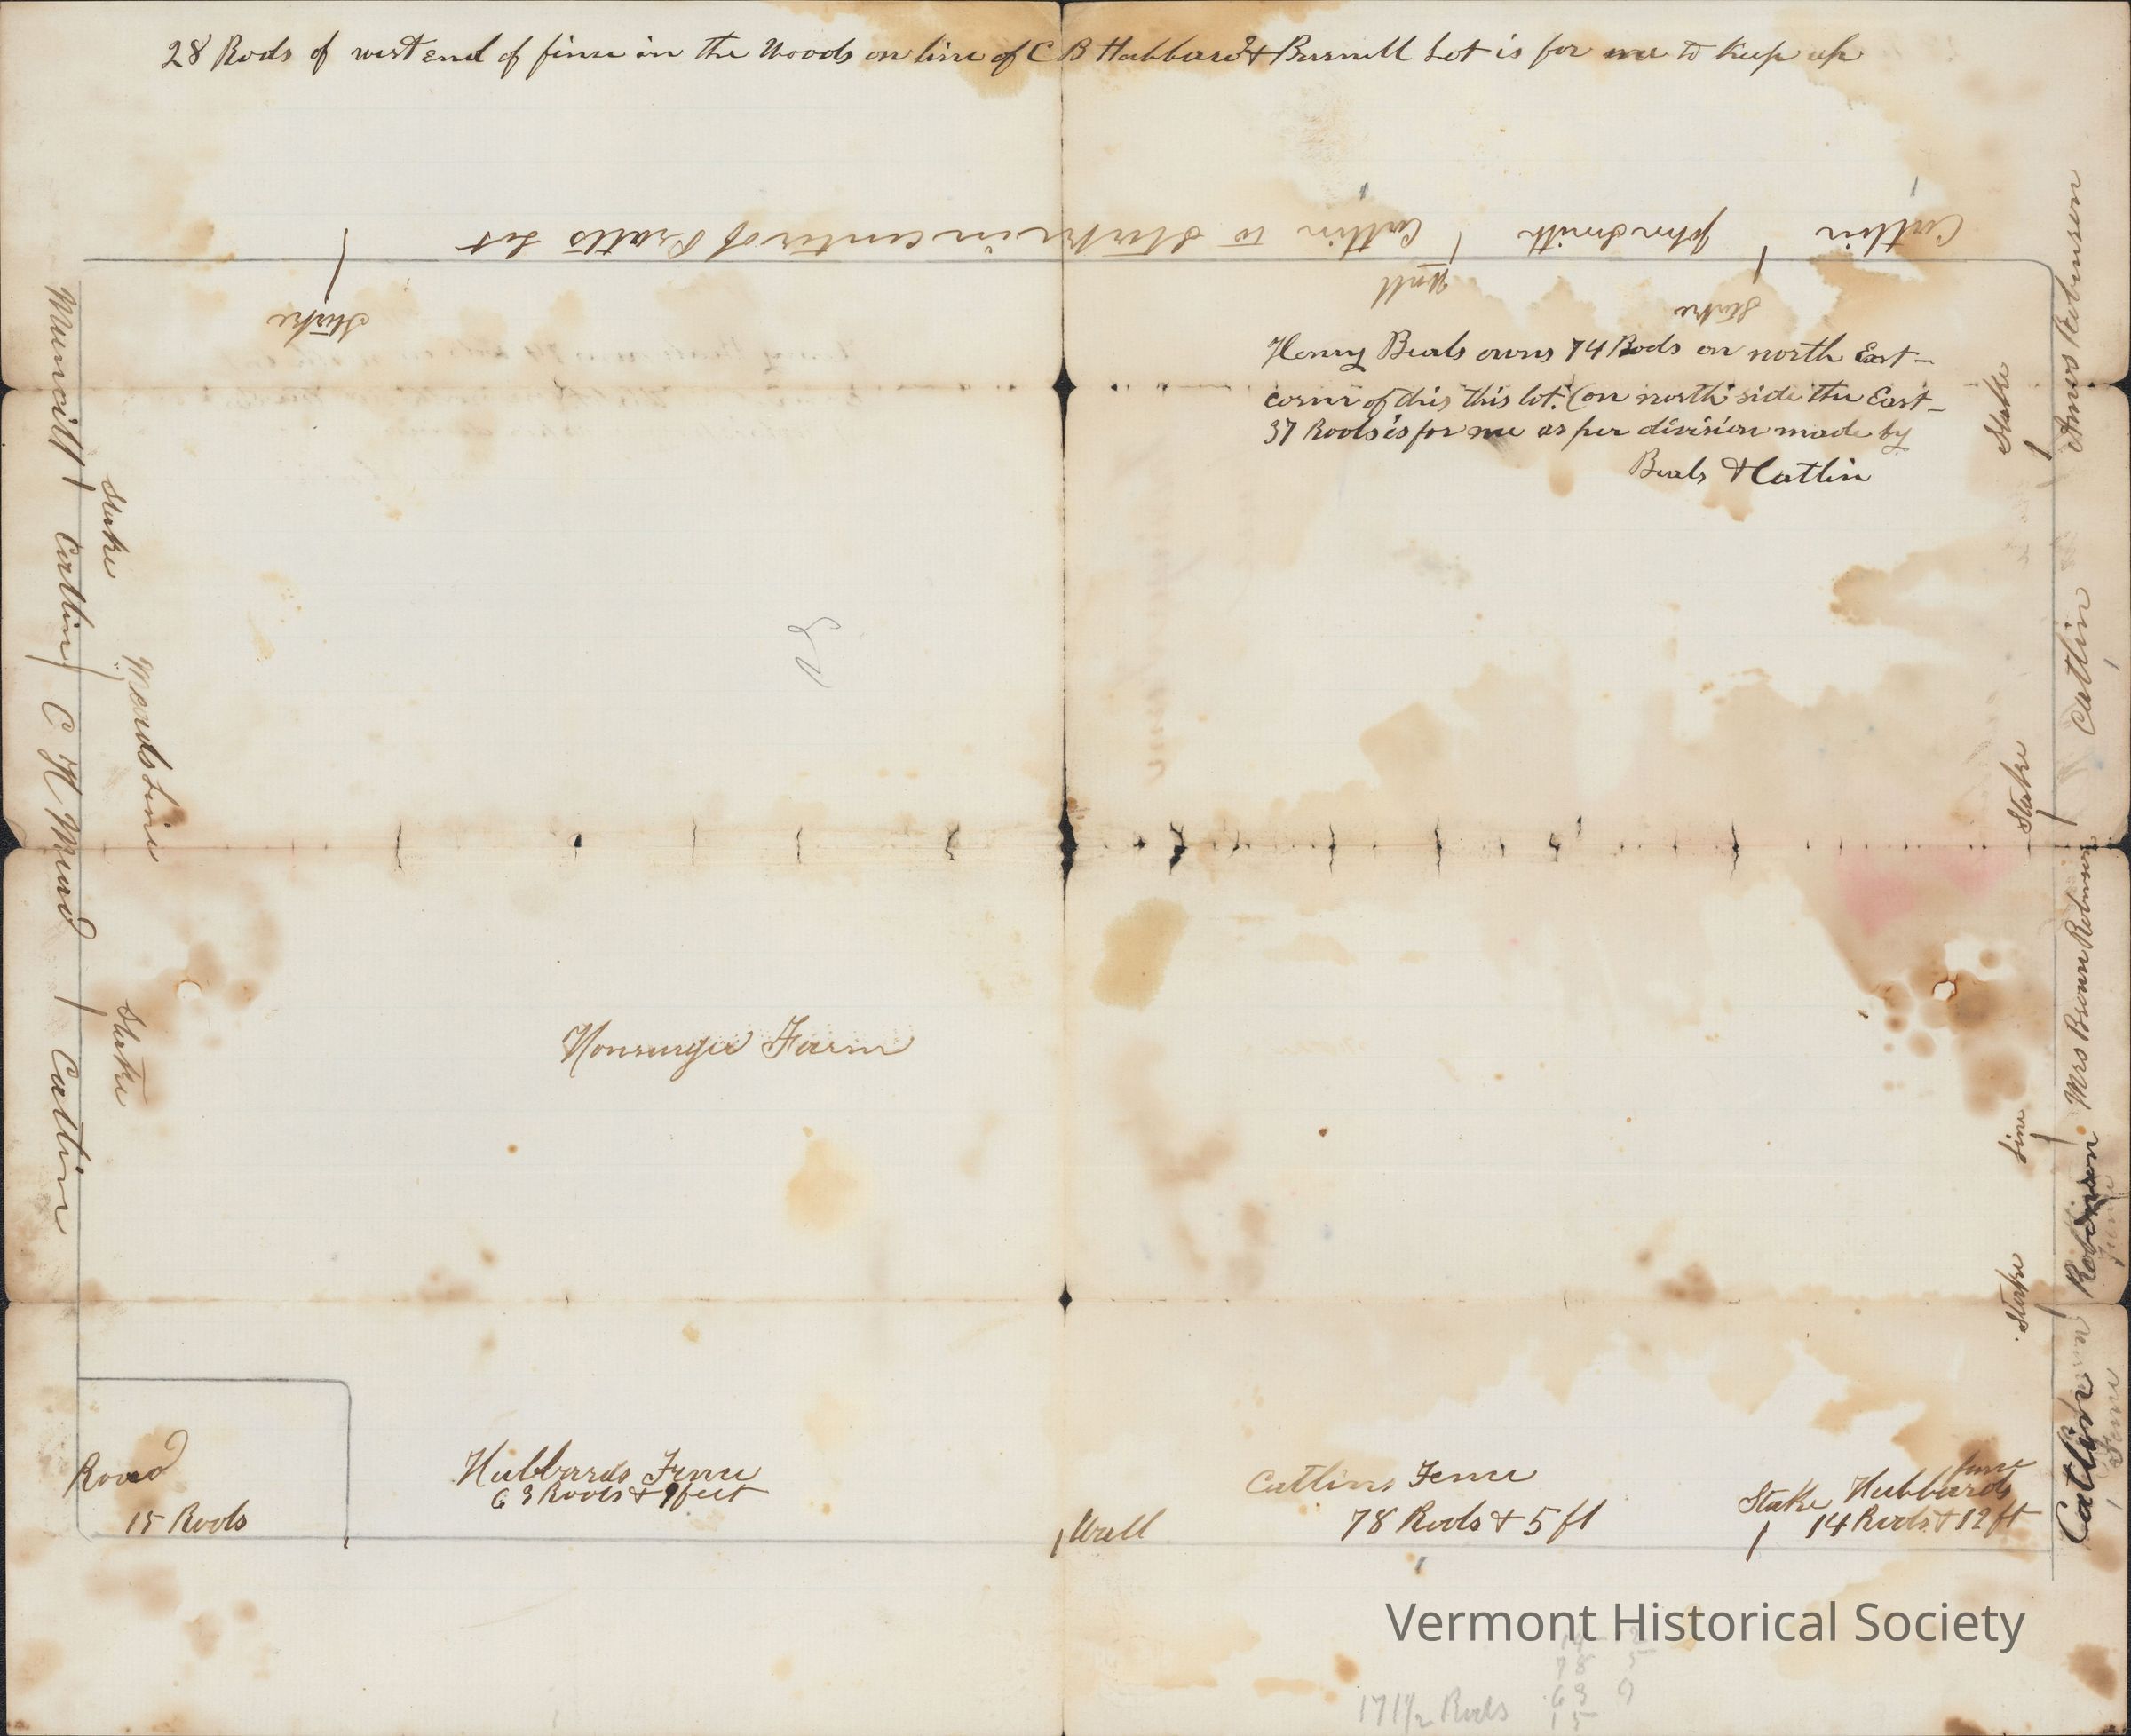 28 Rods of west end of fence in the Woods on line of C B Hubbard & Burnell Lot is for me to keep up
Catlin John Smith Catlin to Stake in center of Pratts Lot
Stake Wall Stake
Henry Beals owns 74 Rods on north East
corner of this this lot. (on north side the East
37 Rods is for me as per division made by
Beals & Catlin
Munsill Catlin C H Mead Catlin
Stake Meads Line Stake
Amos Robinson Catlin Mrs Brown Robinson Robinson Catlin
Fence Fence
Stake Stake Line Stake
Farm
Road
15 Rods
Hubbards Fence
63 Rods & 9 feet
Wall
Catlins Fence
78 Rods & 5 ft
Stake Hubbards fence
14 Rods & 12 ft
Vermont Historical Society
14 12
78 5
63 9
15
171 1/2 Rods